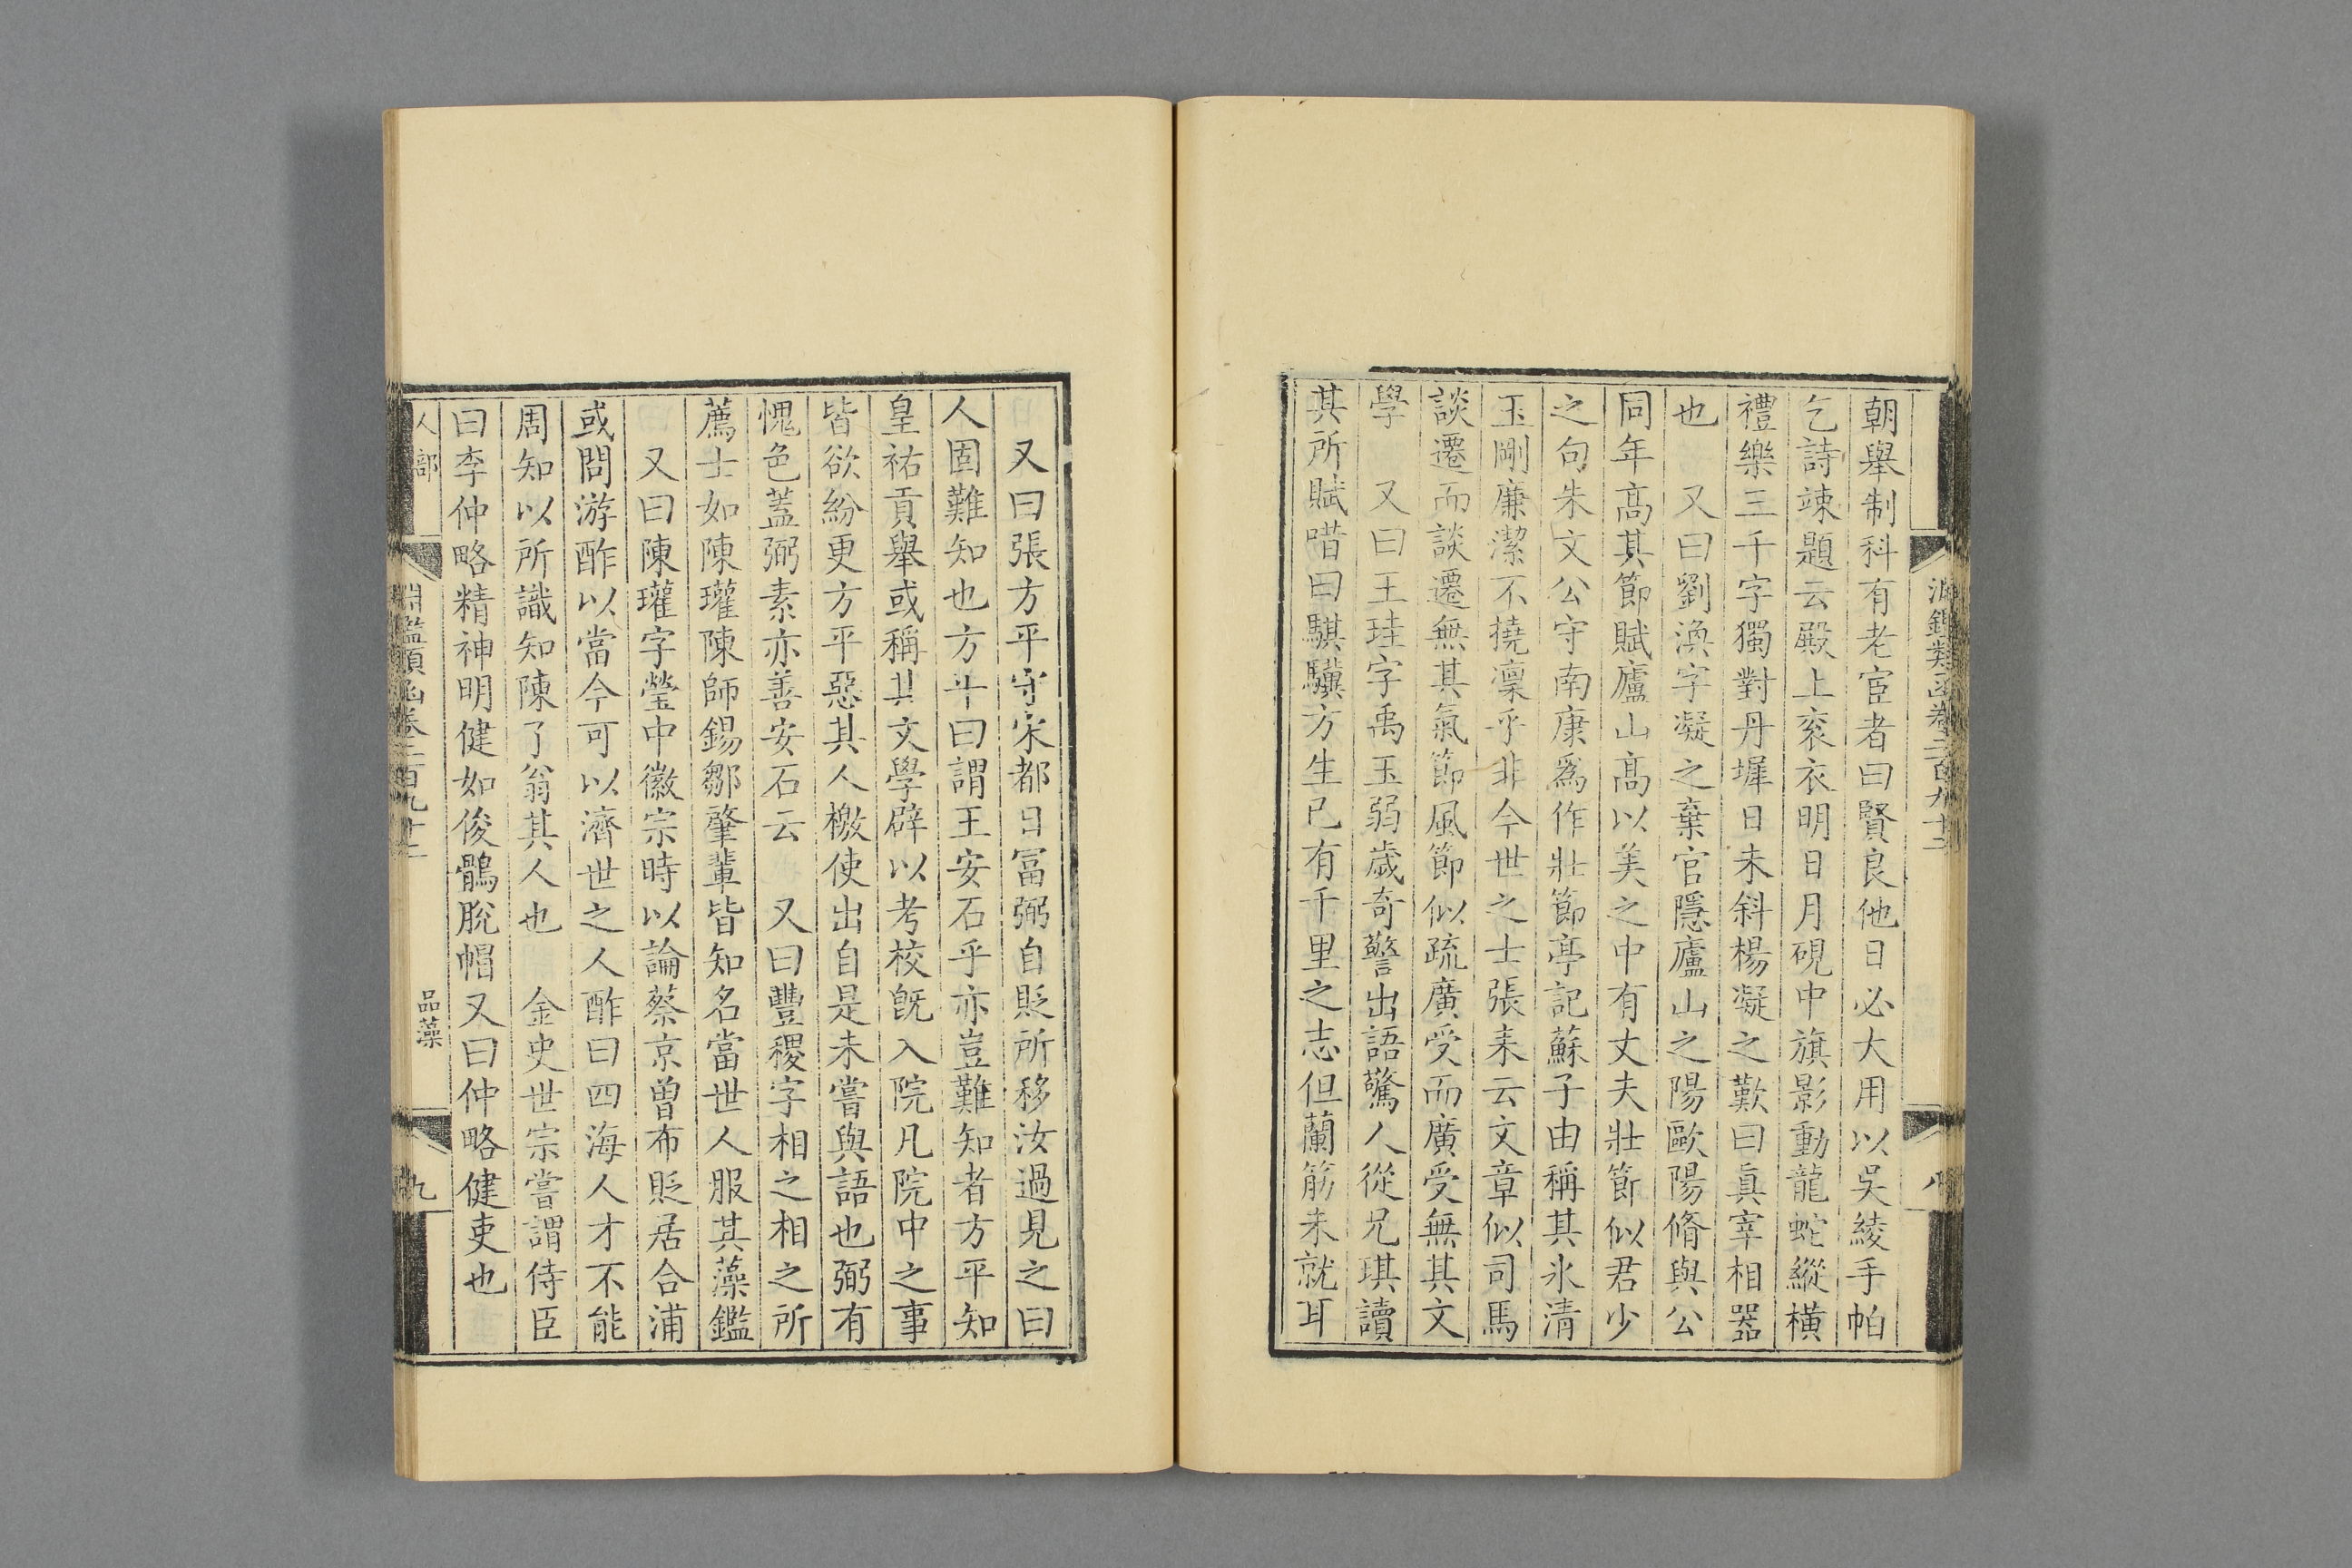 淵鑑類函卷二百九十二
八
朝舉制科有老宦者曰賢良他日必大用以吳綾手帕
乞詩竦題云殿上衮衣明日月硯中旗影動龍蛇縱橫
禮樂三千字獨對丹墀日未斜楊凝之歎曰眞宰相器
也 又曰劉渙字凝之棄官隱廬山之陽歐陽脩與公
同年高其節賦廬山高以美之中有丈夫壯節似君少
之句朱文公守南康爲作壯節亭記蘇子由稱其氷清
玉剛廉潔不撓凜乎非今世之士張耒云文章似司馬
談遷而談遷無其氣節風節似疏廣受而廣受無其文
學 又曰王珪字禹玉弱歲奇警出語驚人從兄琪讀
其所賦唶曰騏驥方生已有千里之志但蘭筋未就耳
又曰張方平守宋都日冨弼自貶所移汝過見之曰
人固難知也方平曰謂王安石乎亦豈難知者方平知
皇祐貢舉或稱其文學辟以考校旣入院凡院中之事
皆欲紛更方平惡其人檄使出自是未嘗與語也弼有
愧色蓋弼素亦善安石云 又曰豐稷字相之相之所
薦士如陳瓘陳師錫鄒肇輩皆知名當世人服其藻鑑
又曰陳瓘字瑩中徽宗時以論蔡京曾布貶居合浦
或問游酢以當今可以濟世之人酢曰四海人才不能
周知以所識知陳了翁其人也 金史世宗嘗謂侍臣
曰李仲略精神明健如俊鶻脫帽又曰仲略健吏也
人部
淵鑑類函卷二百九十二
品藻
九